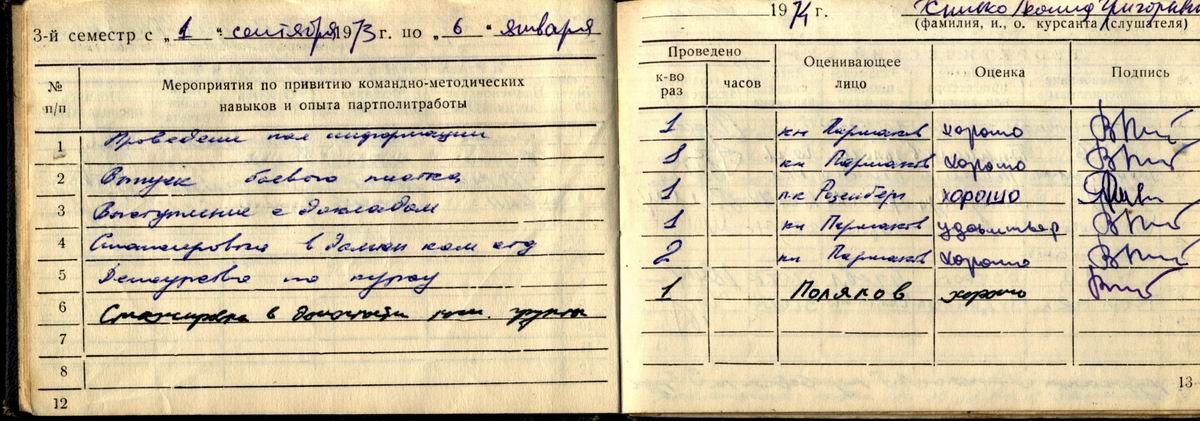 3-й семестр с „1“ сентября 1973 г. по „6“ января
№ п/п
Мероприятия по привитию командно-методических
навыков и опыта партполитработы
1 Проведение пол информации
2 Выпуск боевого листка
3 Выступление с докладом
4 в должн ком отд
5 Дежурство по курсу
6 Стажировка в должности ком. группы
7
8
12
1974 г. Леонид Григорьевич
(фамилия, и., о. курсанта (слушателя)
Проведено
к-во раз
часов
Оценивающее
лицо
Оценка
Подпись
1 кн Пермяков хорошо
1 кн Пермяков хорошо
1 пк Розенберг хорошо
1 кн Пермяков удовлетвор
2 кн Пермяков хорошо
1 Поляков хорошо
13